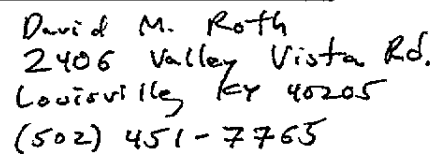 David M. Roth
2406 Valley Vista Rd.
Louisville, KY 40205
(502) 451-7765